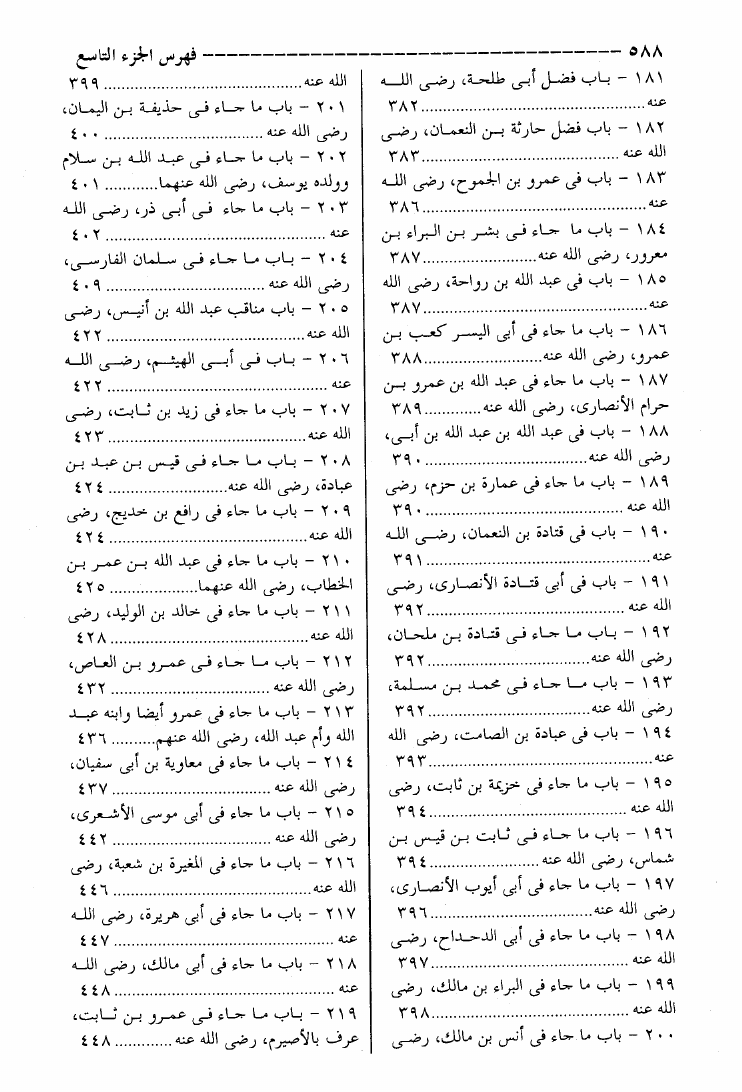 ٥٨٨ ــــــــــــــــــــــــــــــــــــــــ فهرس الجزء التاسع
١٨١ – باب فضل أبى طلحة، رضى الله
عنه........................................ ٣٨٢
١٨٢ – باب فضل حارثة بن النعمان، رضى
الله عنه .................................... ٣٨٣
١٨٣ – باب فى عمرو بن الجموح، رضى الله
عنه........................................ ٣٨٦
١٨٤ – باب ما جاء فى بشر بن البراء بن
معرور، رضى الله عنه........................ ٣٨٧
١٨٥ – باب فى عبد الله بن رواحة، رضى الله
عنه........................................ ٣٨٧
١٨٦ – باب ما جاء فى أبى اليسر كعب بن
عمرو، رضى الله عنه........................ ٣٨٨
١٨٧ – باب ما جاء فى عبد الله بن عمرو بن
حرام الأنصارى، رضى الله عنه............. ٣٨٩
١٨٨ – باب فى عبد الله بن عبد الله بن أبى،
رضى الله عنه............................... ٣٩٠
١٨٩ – باب ما جاء فى عمارة بن حزم، رضى
الله عنه .................................... ٣٩٠
١٩٠ – باب فى قتادة بن النعمان، رضى الله
عنه........................................ ٣٩١
١٩١ – باب فى أبى قتادة الأنصارى، رضى
الله عنه .................................... ٣٩٢
١٩٢ – باب ما جاء فى قتادة بن ملحان،
رضى الله عنه............................... ٣٩٢
١٩٣ – باب ما جاء فى محمد بن مسلمة،
رضى الله عنه............................... ٣٩٢
١٩٤ – باب فى عبادة بن الصامت، رضى الله
عنه........................................ ٣٩٣
١٩٥ – باب ما جاء فى خزيمة بن ثابت، رضى
الله عنه .................................... ٣٩٤
١٩٦ – باب ما جاء فى ثابت بن قيس بن
شماس، رضى الله عنه ...................... ٣٩٤
١٩٧ – باب ما جاء فى أبى أيوب الأنصارى،
رضى الله عنه............................... ٣٩٦
١٩٨ – باب ما جاء فى أبى الدحداح، رضى
الله عنه .................................... ٣٩٧
١٩٩ – باب ما جاء فى البراء بن مالك، رضى
الله عنه .................................... ٣٩٨
٢٠٠ – باب ما جاء فى أنس بن مالك، رضى
الله عنه.................................... ٣٩٩
٢٠١ – باب ما جاء فى حذيفة بن اليمان،
رضى الله عنه ............................... ٤٠٠
٢٠٢ – باب ما جاء فى عبد الله بن سلام
وولده يوسف، رضى الله عنهما............ ٤٠١
٢٠٣ – باب ما جاء فى أبى ذر، رضى الله
عنه ........................................ ٤٠٢
٢٠٤ – باب ما جاء فى سلمان الفارسى،
رضى الله عنه ............................... ٤٠٩
٢٠٥ – باب مناقب عبد الله بن أنيس، رضى
الله عنه.................................... ٤٢٢
٢٠٦ – باب فى أبى الهيثم، رضى الله
عنه ........................................ ٤٢٢
٢٠٧ – باب ما جاء فى زيد بن ثابت، رضى
الله عنه.................................... ٤٢٣
٢٠٨ – باب ما جاء فى قيس بن عبد بن
عبادة، رضى الله عنه....................... ٤٢٤
٢٠٩ – باب ما جاء فى رافع بن خديج، رضى
الله عنه.................................... ٤٢٤
٢١٠ – باب ما جاء فى عبد الله بن عمر بن
الخطاب، رضى الله عنهما................... ٤٢٥
٢١١ – باب ما جاء فى خالد بن الوليد، رضى
الله عنه.................................... ٤٢٨
٢١٢ – باب ما جاء فى عمرو بن العاص،
رضى الله عنه ............................... ٤٣٢
٢١٣ – باب ما جاء فى عمرو أيضا وابنه عبد
الله وأم عبد الله، رضى الله عنهم.......... ٤٣٦
٢١٤ – باب ما جاء فى معاوية بن أبى سفيان،
رضى الله عنه ............................... ٤٣٧
٢١٥ – باب ما جاء فى أبى موسى الأشعرى،
رضى الله عنه ............................... ٤٤٢
٢١٦ – باب ما جاء فى المغيرة بن شعبة، رضى
الله عنه.................................... ٤٤٦
٢١٧ – باب ما جاء فى أبى هريرة، رضى الله
عنه ........................................ ٤٤٧
٢١٨ – باب ما جاء فى أبى مالك، رضى الله
عنه ........................................ ٤٤٨
٢١٩ – باب ما جاء فى عمرو بن ثابت،
عرف بالأصيرم، رضى الله عنه ............. ٤٤٨